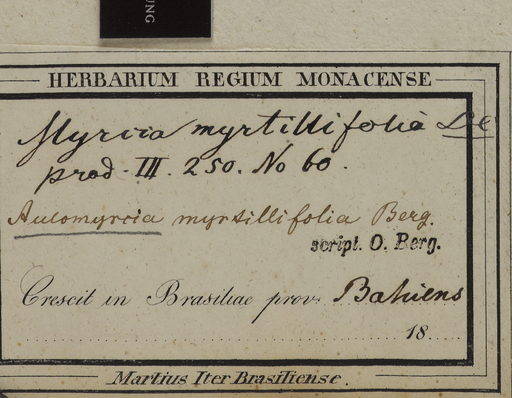 UNG
HERBARIUM REGIUM MONACENSE
Myrcia myrtillifolia DC
prod. III. 250. No 60.
Aulomyrcia myrtillifolia Berg.
script. O. Berg.
Crescit in Brasiliae prov. Bahiens
18
Martius Iter Brasiliense.